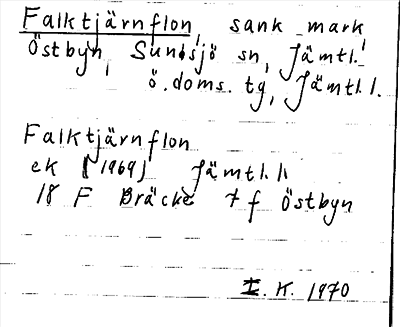 Falktjärnflon, sank mark
Östbyn, Sundsjö sn, Jämtl.
ö. doms. tg, Jämtl. l.
Falktjärnflon
ek (1969) Jämtl. l.
18 F Bräcke 7 f Östbyn
I. K. 1970